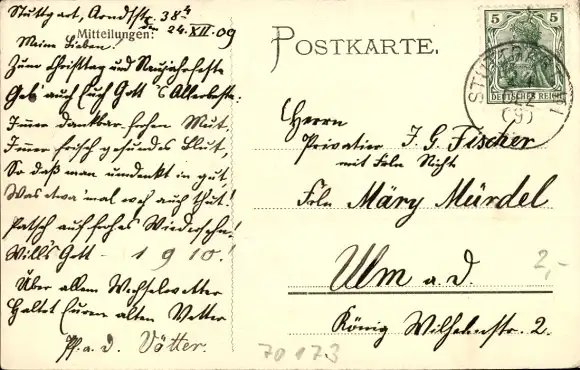 Stuttgart, Arndtstr. 38 4
den 24. XII. 09
Mitteilungen:
Meine Lieben!
Zum Christtag und Neujahrsfeste
Geb' auch Euch Gott 's Allerbeste:
Immer dankbar frohen Mut,
Immer frisch gesundes Blut,
So daß man umdenkt in gut
Was etwa 'mal weh auch thut!
Patsch auf frohes Wiedersehn!
Will's Gott - 1910!
Über allem Wechselwetter
Haltet Euren alten Vetter
Pf. a. D. Vötter.
POSTKARTE.
5 5
DEUTSCHES REICH
STUTTGART
24
DEZ
09
Herrn
Privatier J. G. Fischer
mit Frln Nicht
Frln Märy Mürdel
Ulm a. d.
König Wilhelmstr. 2.
2,-
70173